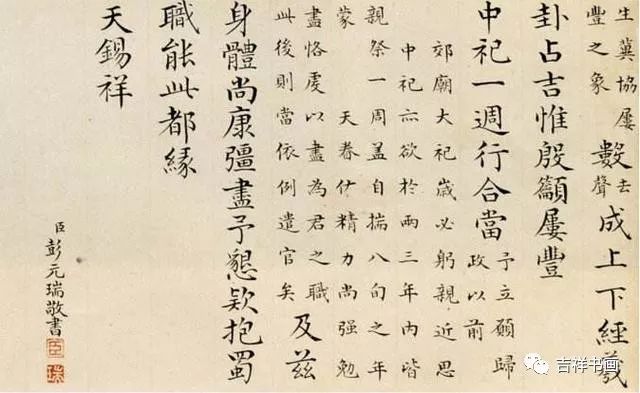 生蓂協屢
豐之象
數去聲成上下經羲
卦占吉惟殷籲屢豐
中祀一週行合當
予立願歸
政以前
郊廟大祀歲必躬親近思
中祀亦欲於兩三年內皆
親祭一周蓋自揣八旬之年
蒙 天眷仗精力尚强勉
盡恪虔以盡為君之職
此後則當依例遣官矣
及茲
身體尚康彊盡予懇欵抱蜀
職能此都緣
天錫祥
臣彭元瑞敬書
臣
瑞
吉祥书画